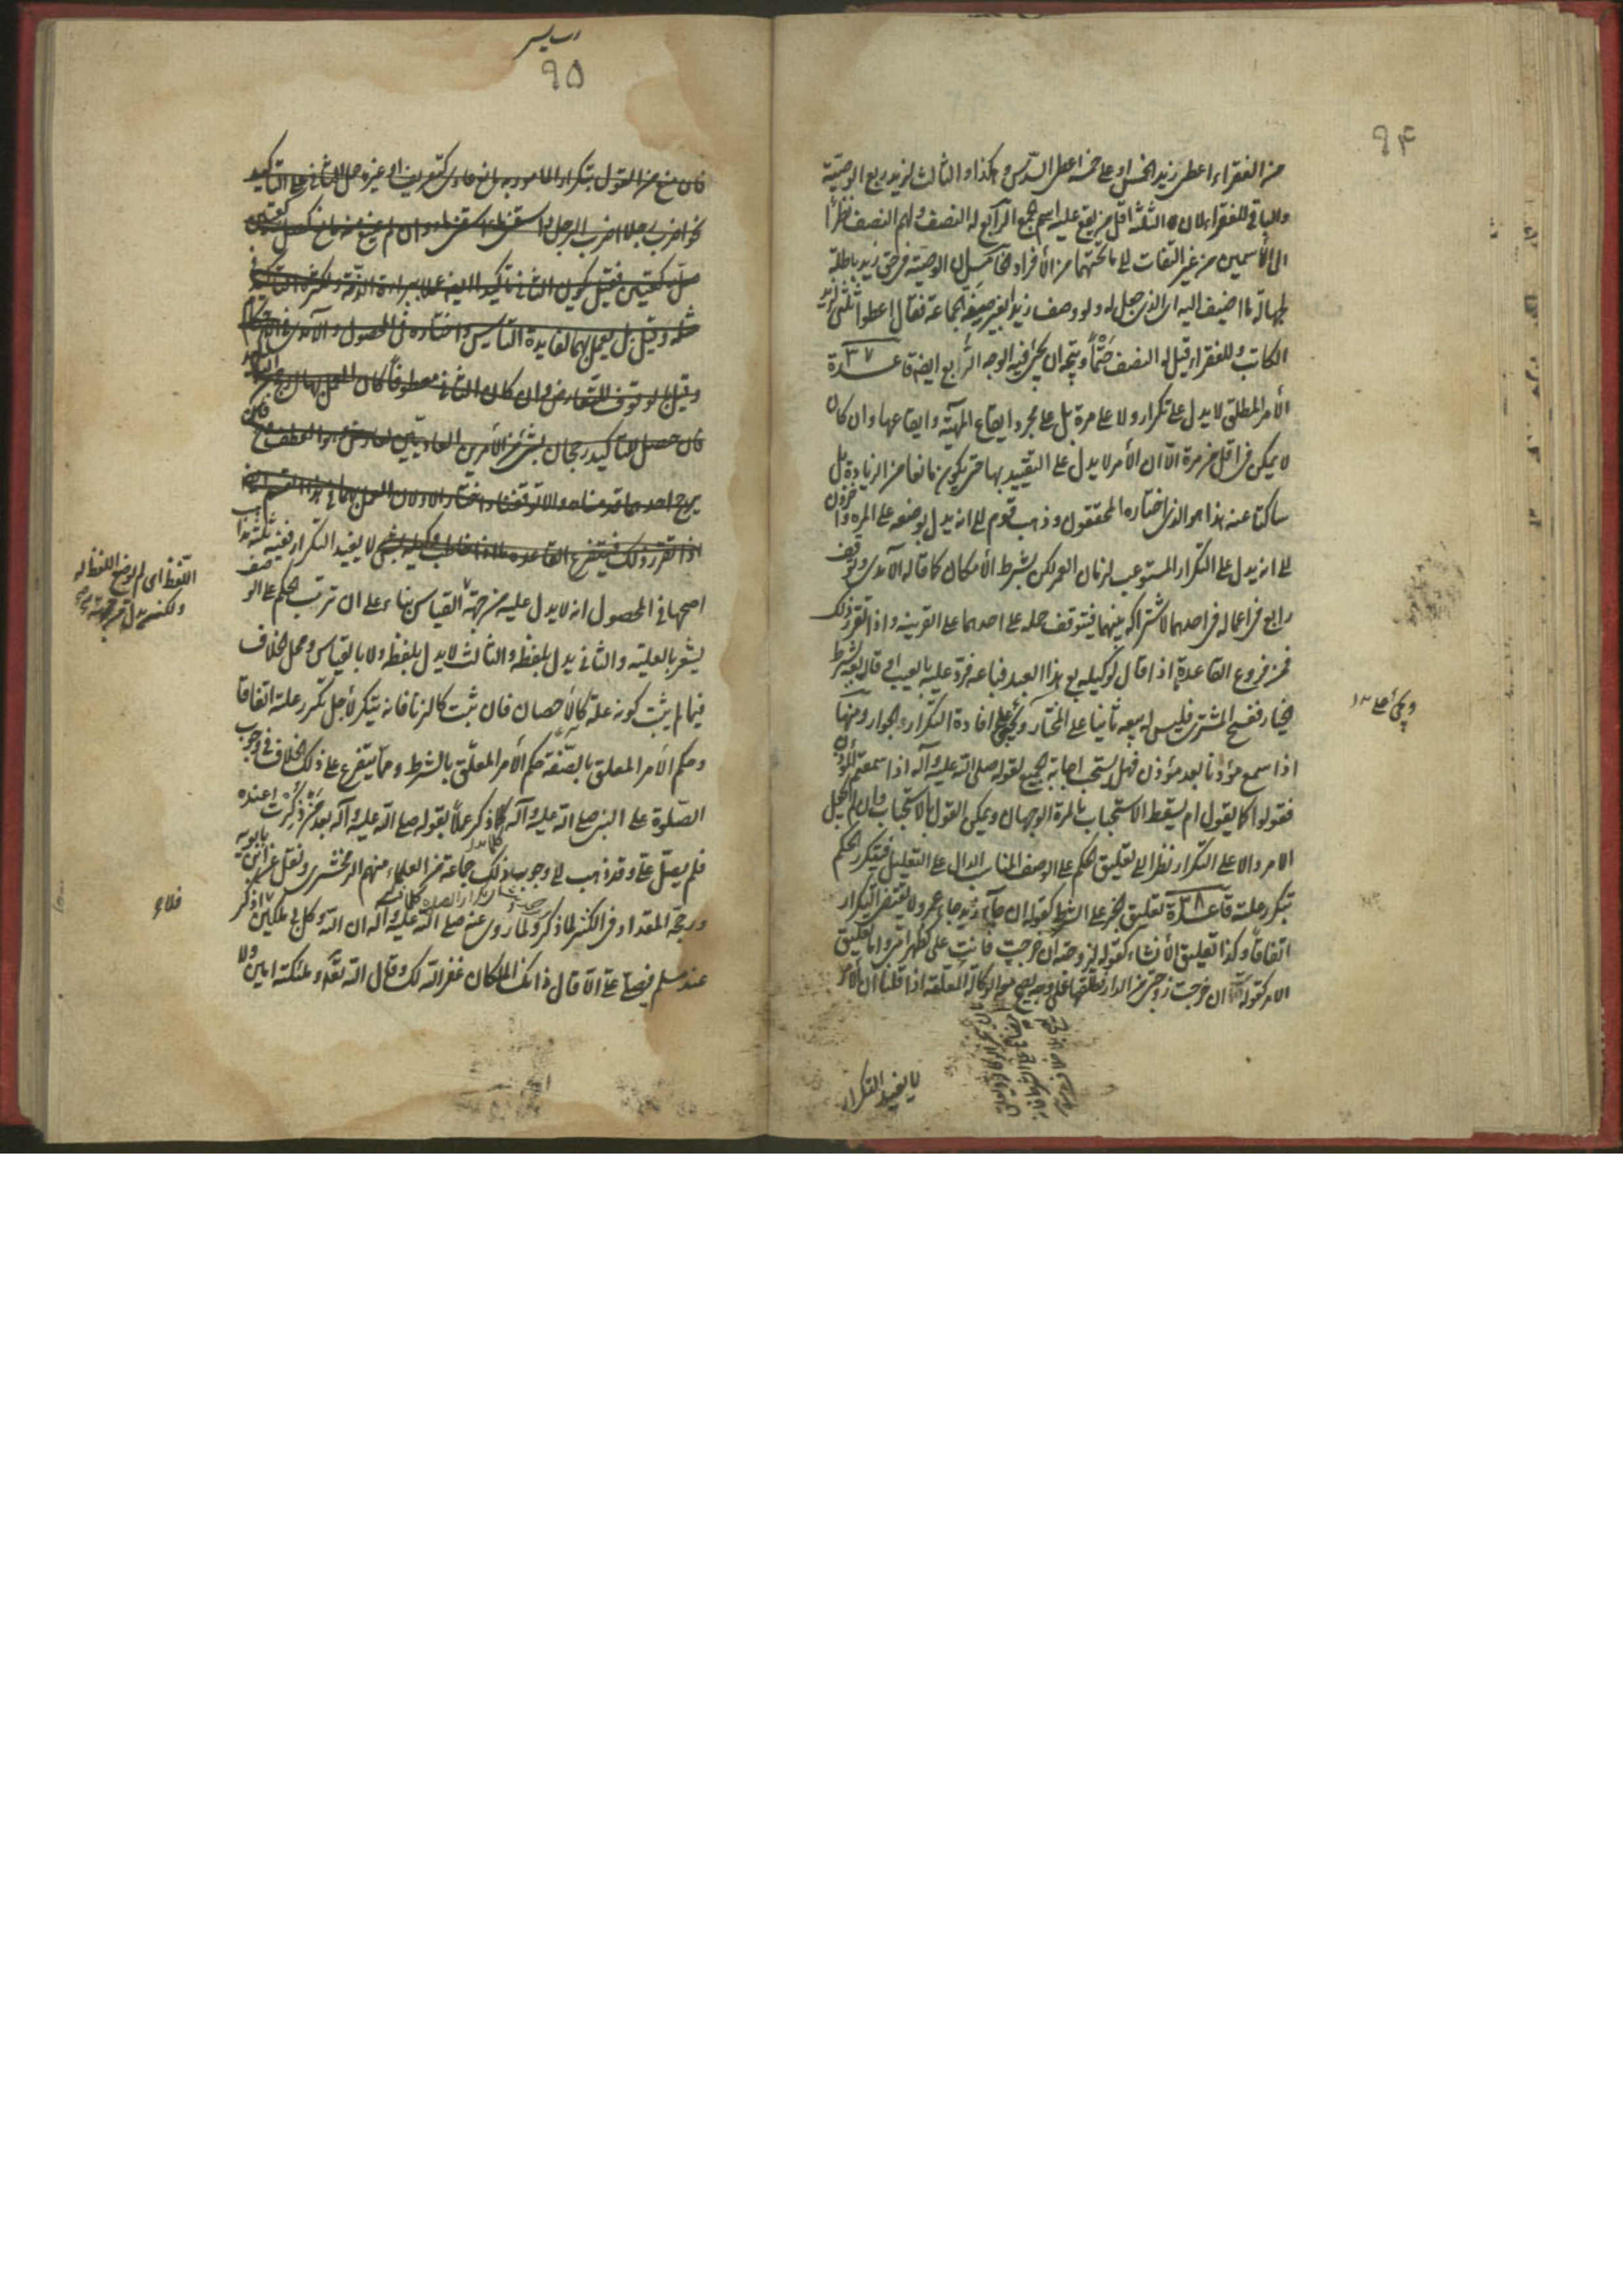 ٩٤
من الفقراء اعطى زيد الخمس او على خمسة اعطى السدس وهكذا والثالث لزيد ربع الوصية
والباقي للفقراء لان الثلثة اقل من يقع عليه اسم الجمع الرابع له النصف ولهم النصف نظرا
الى الاسمين من غير التفات الى ما تحتهما من الأفراد الخامس ان الوصية في حق زيد باطلة
لجهالة ما اضيف اليه اى الذى جعل له ولو وصف زيدا بغير صيغة الجماعة فقال اعطوا ثلثى لزيد
الكاتب وللفقراء قيل له النصف حتماً ويتجه ان يجئ فيه الوجه الرابع ايضا قاعدة ٣٧
الأمر المطلق لا يدل على تكرار ولا على مرة بل على مجرد ايقاع المهية وايقاعها وان كان
لا يمكن فى اقل من مرة الا ان الأمر لا يدل على التقييد بها حتى يكون مانعا من الزيادة بل
ساكتا عنه هذا هو الذى اختاره المحققون وذهب قوم الى انه يدل بوضعه على المرة واخرون
الى انه يدل على التكرار المستوعب لزمان العمر لكن بشرط الأمكان كما قاله الآمدى وتوقف
رابع فى اعماله فى احدهما لاشتراكه بينهما فيتوقف حمله على احدهما على القرينة واذا تقرر ذلك
فمن فروع القاعدة اذا قال لوكيله بع هذا العبد فباعه فرد عليه بالعيب او قال بعه بشرط
الخيار ففسخ المشترى فليس له بيعه ثانيا على المختار ويجئ على افادة التكرار الجواز ومنها
اذا سمع مؤذنا بعد مؤذن فهل يستحب اجابة الجميع لقوله صلى الله عليه وآله اذا سمعتم المؤذن
فقولوا كما يقول ام يسقط الاستحباب بالمرة الوجهان ويمكن القول بالاستحباب وان لم نجعل
الامر دالا على التكرار نظرا الى تعليق الحكم على الوصف المناسب الدال على التعليل فيتكرر الحكم
بتكرر علته قاعدة ٣٨ تعليق الخبر على الشرط كقوله ان جاء زيد جاء عمرو لا يقتضى التكرار
اتفاقا وكذا تعليق الأنشاء كقوله لزوجته ان خرجت فانت على كظهر امى واما تعليق
الامر كقوله ان خرجت زوجتى من الدار فطلقها على وجه يصح مع الوكالة المعلقة اذا قلنا ان الأمر
لا يفيد التكرار
٩٥
فان منع من القول بتكرار المامور به مانع عادى كتعريف او غيره حمل الثانى على التاكيد
نحو اضرب رجلا اضرب الرجل اسقنى ماء اسقنى ماء وان لم يمنع منه مانع كصل ركعتين
صل ركعتين فقيل يكون الثانى تاكيدا ايضا عملا ببراءة الذمة ولكثرة التاكيد فى
مثله وقيل بل يعمل بهما لفايدة التاسيس واختاره فى المحصول والآمدى فى الاحكام
وقيل بالوقوف للتعارض وان كان الثانى معطوفا كان العمل بهما ارجح من التاكيد
فان حصل للتاكيد رجحان بشئ من الأمرين العاديين تعارض هو والعطف فان
يرجح احدهما قدمناه والا توقفنا واختار الاولان العمل بهما فى هذا القسم ايضا
اذا تقرر ذلك فيتفرع القاعدة لا يفيد التكرار ففيه ثلثة مذاهب
اصحها فى المحصول انه لا يدل عليه من جهة القياس بناء على ان ترتب الحكم على الوصف
يشعر بالعلية والثانى يدل بلفظه والثالث لا يدل بلفظه ولا بالقياس ومحل الخلاف
فيما لم يثبت كونه علة كالأحصان فان ثبت كالزنا فانه يتكرر لأجل تكرر علته اتفاقا
وحكم الأمر المعلق بالصفة حكم الأمر المعلق بالشرط ومما يتفرع على ذلك الخلاف فى وجوب
الصلوة على النبى صلى الله عليه وآله كلما ذكر عملاً بقوله صلى الله عليه وآله بعد من ذكرت عنده
فلم يصل على وقد ذهب الى وجوب ذلك جماعة من العلماء منهم الزمخشرى ونقل عن ابن بابويه
ورجحه المقداد فى الكنز لما ذكر ولما روى عنه صلى الله عليه وآله ان الله وكل بى ملكين فلا اذكر
عند مسلم فيصلى على الا قال ذانك الملكان غفر الله لك وقال الله تعالى وملئكته امين ولا
اللفظ اى لم يوضع اللفظ له
فلاء